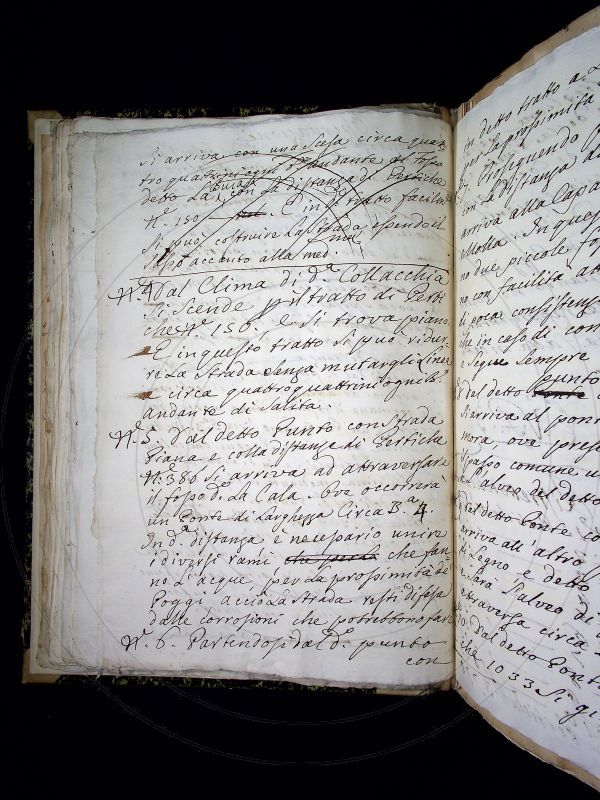 Si arriva con una scesa circa quat
tro quattrini ogni B. andante al fosso
detto La con la distanza di Pertiche
N.º 150. E in d.º tratto facilm.
Si può costruire la strada essendo il
fosso accanto alla med.
N.º 4. Dal Clima di d.ª Collacchia
Si Scende p. il tratto di Perti
che N.º 156. e si trova piano.
E in questo tratto si può ridur
re la strada senza mutargli Linea
a circa quattro quattrini ogni B.
andante di Salita.
N.º 5. Dal detto Punto con strada
Piana e colla distanza di Pertiche
N.º 386 si arriva ad attraversare
il fosso d. La Cala. Ove occorrerà
un Ponte di Larghezza Circa B.a 4.
In d.ª distanza è necessario unire
i diversi rami che fan
no L'acque, per la prossimità de'
Poggi acciò La strada resti difesa
dalle corrosioni che potrebbono fare
N.º 6. Partendosi dal d.º punto
con
in detto tratto a
per la prossimità
Proseguendo
con La distanza
arriva alla Capa
Molla. In ques
no due piccole fo
no con facilità at
di poca consistenz
che in caso di con
e Segue sempre
punto
dal detto
Si arriva al pon
mora, ove pres
il passo comune u
L'alveo del detto
dal detto Ponte co
arriva all'altro
di Legno e detto
e sarà L'alveo di
attraversa circa
Dal detto Ponte
che 1033 si gi